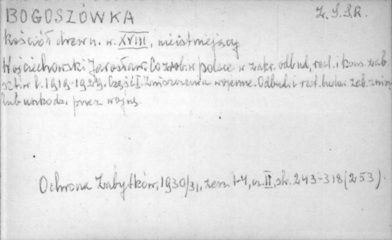 BOGOSZÓWKA Z.S.S.R.
Kościół drewn. w. XVIII, nieistniejący
Wojciechowski Jarosław: Co zrob. w Polsce w zakr. odbud., rest. i kons. zab.
szt. w l. 1919-1929. Część I. Zniszczenia wojenne. Odbud. i rest. budow. zab. zniszcz.
lub uszkodz. przez wojnę
Ochrona Zabytków, 1930/31, zesz. 1-4, cz. II, str. 243-318 (253).